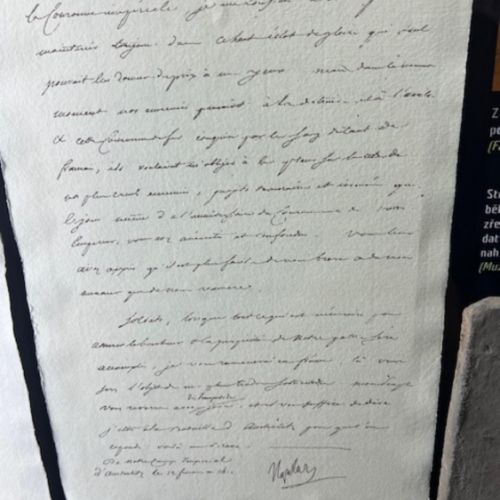 la Couronne impériale, je me
maintenir toujours dans ce haut éclat de gloire qui seul
pouvait lui donner du prix à mes yeux mais dans le même
moment nos ennemis pensaient à la détruire et à l'avilir
et cette Couronne de fer conquise par le sang de tant de
français, ils voulaient m'obliger à la placer sur la tête de
nos plus cruels ennemis, projets téméraires et insensés que
le jour même de l'anniversaire du Couronnement de votre
Empereur, vous avez anéantis et confondus. Vous leur
avez appris qu'il est plus facile de nous braver et de nous
menacer que de nous vaincre.
Soldats, lorsque tout ce qui est nécessaire pour
assurer le bonheur et la prospérité de notre patrie sera
accompli, je vous ramenerai en france là vous
serez l'objet de mes plus tendres sollicitudes mon peuple
vous reverra avec joie, et il vous suffira de dire
j'étais à la bataille d'Austerlitz pour que l'on
réponde voilà un brave.
De notre Camp Impérial
d'Austerlitz le 12 frimaire an 14.
Napoléon
Z
(Fa
běl
zře
dat
nah
(Muz